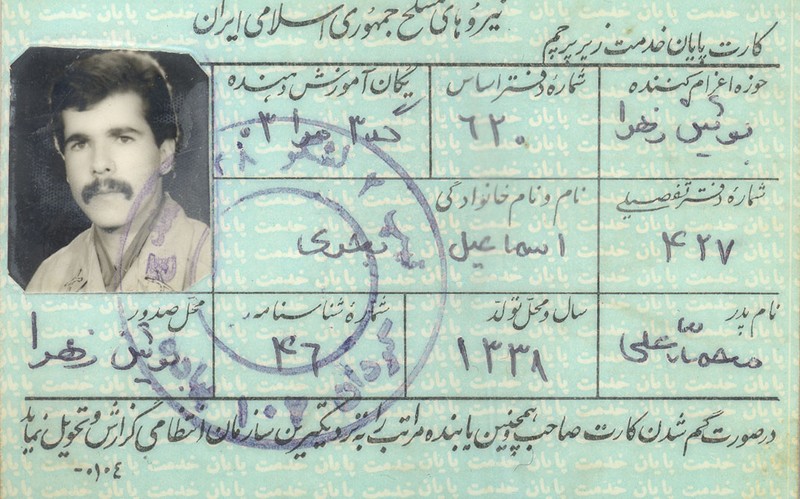 نیروهای مسلح جمهوری اسلامی ایران
کارت پایان خدمت زیر پرچم
حوزه اعزام کننده
بوئین زهرا
شمارهٔ دفتر اساس
٦٢٠
یگان آموزش دهنده
شمارهٔ دفتر تفصیلے
٤٢٧
نام و نام خانوادگی
اسماعیل
نام پدر
محمدعلی
سال و محل تولد
١٣٣٨
شمارهٔ شناسنامه
٤٦
محل صدور
بوئین زهرا
در صورت گم شدن کارت صاحب و همچنین یابنده مراتب را به نزدیکترین سازمان انتظامی گزارش و تحویل نماید